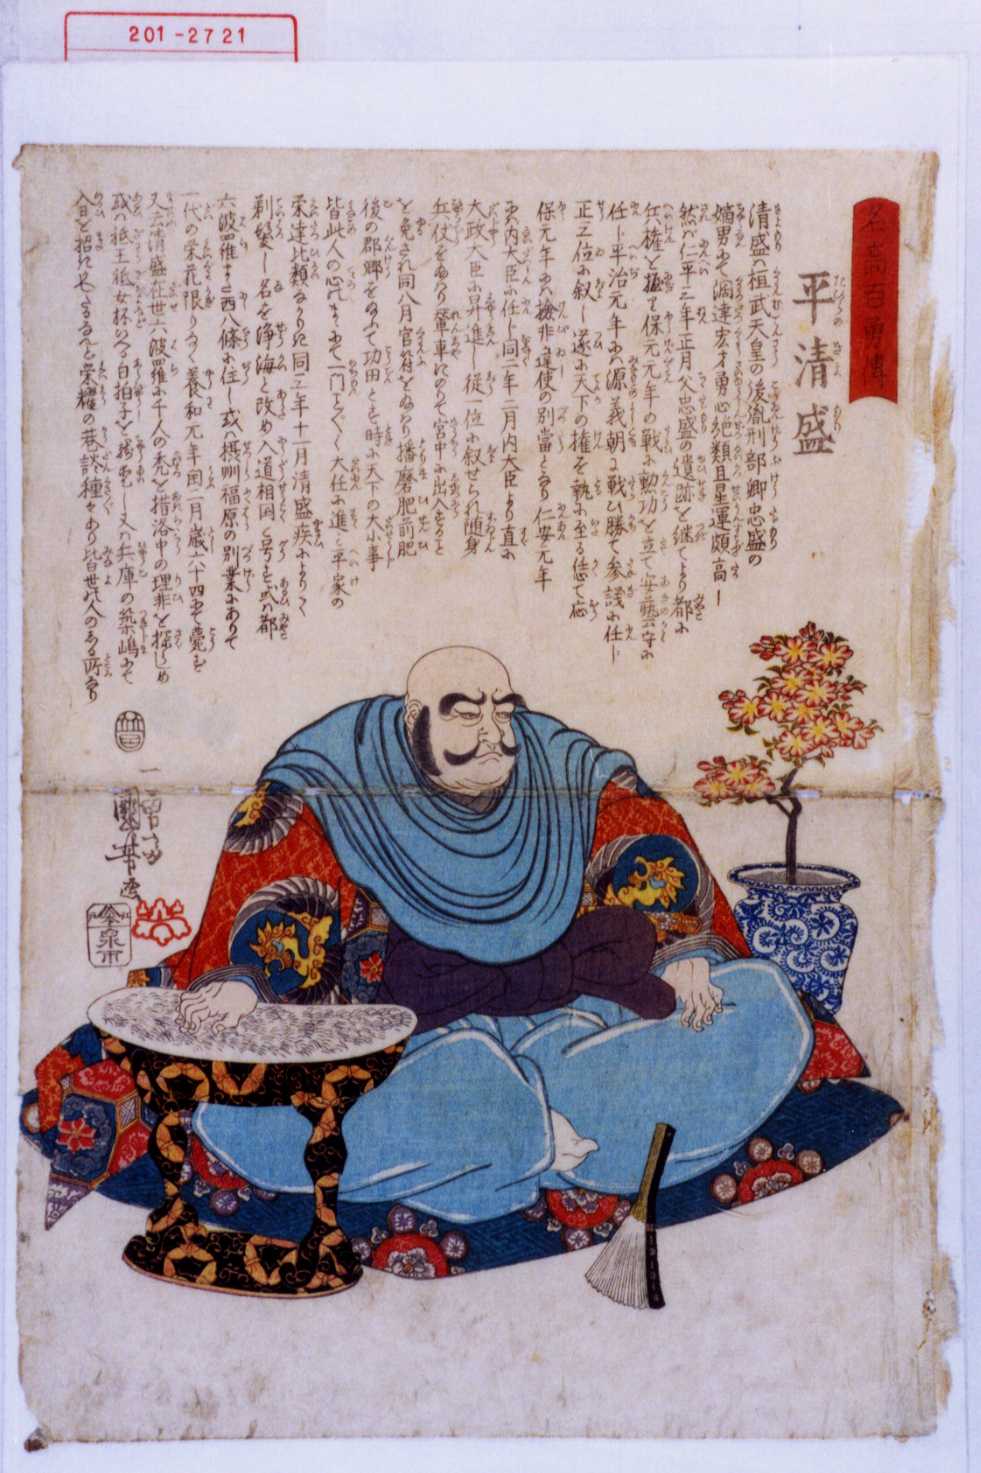 201-2721
名高百勇傳
平清盛
清盛ハ桓武天皇の後胤刑部卿忠盛の
嫡男にて濶達宏才勇心絶類且星運頗高し
然るに仁平三年正月父忠盛の遺跡を継てより都に
兵権を握り保元元年の戦に勲功を立て安藝守に
任し平治元年にハ源義朝に戦ひ勝て参議に任し
正三位に叙し遂に天下の権を執に至る
保元年にハ検非違使の別當となり仁安元年
内大臣に任し同二年二月内大臣より直に
大政大臣に昇進し従一位に叙せられ随身
兵仗をたまハり輦車にのりて宮中に出入する
を免され同八月官符をたまハり播磨肥前肥
後の郡郷をたまふて功田とす時に天下の大小事
皆此人の心のまゝにて一門こと〴〵く大任に進み平家の
栄達比類なかりき同三年十一月清盛疾によりて
剃髪し名を浄海と改め入道相国と号す或ハ都
六波羅また西八條に住し或ハ摂州福原の別業にありて
一代の栄花限りなく養和元年閏二月歳六十四にて薨す
又云清盛在世六波羅に千人の禿を措洛中の理非を探らしめ
或ハ祇王祇女杯いへる白拍子を又ハ兵庫の築嶋にて
入日を招にせしなんど栄耀の巷談種々あり皆世の人のしる所なり
一勇斎
國芳画
泉市